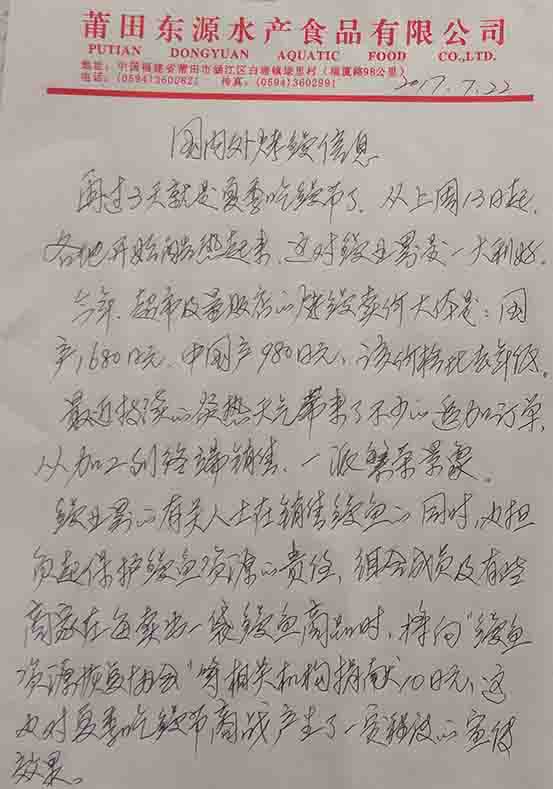 莆田东源水产食品有限公司
PUTIAN DONGYUAN AQUATIC FOOD CO.,LTD.
地址：中国福建省莆田市涵江区白塘镇埭里村（福厦路98公里）
电话：(0594)3600821 传真：(0594)3602991
2017.7.22
国内外烤鳗信息
再过3天就是夏季吃鳗节了，从上周13日起，
各地开始酷热起来，这对鳗业界是一大利好。
今年，超市及量販店的烤鳗卖价大体是：国
产1,680日元，中国产980日元，该价格比去年低。
最近持续的炎热天气带来了不少的追加订单，
从加工到终端销售，一派繁荣景象。
鳗业界的有关人士在销售鳗鱼的同时，也担
负起保护鳗鱼资源的责任，组合成员及有些
商家在每卖出一袋鳗鱼商品时，将向“鳗鱼
资源恢复协会”等相关机构捐献10日元，这
也对夏季吃鳗节商战产生了一定程度的宣传
效果。